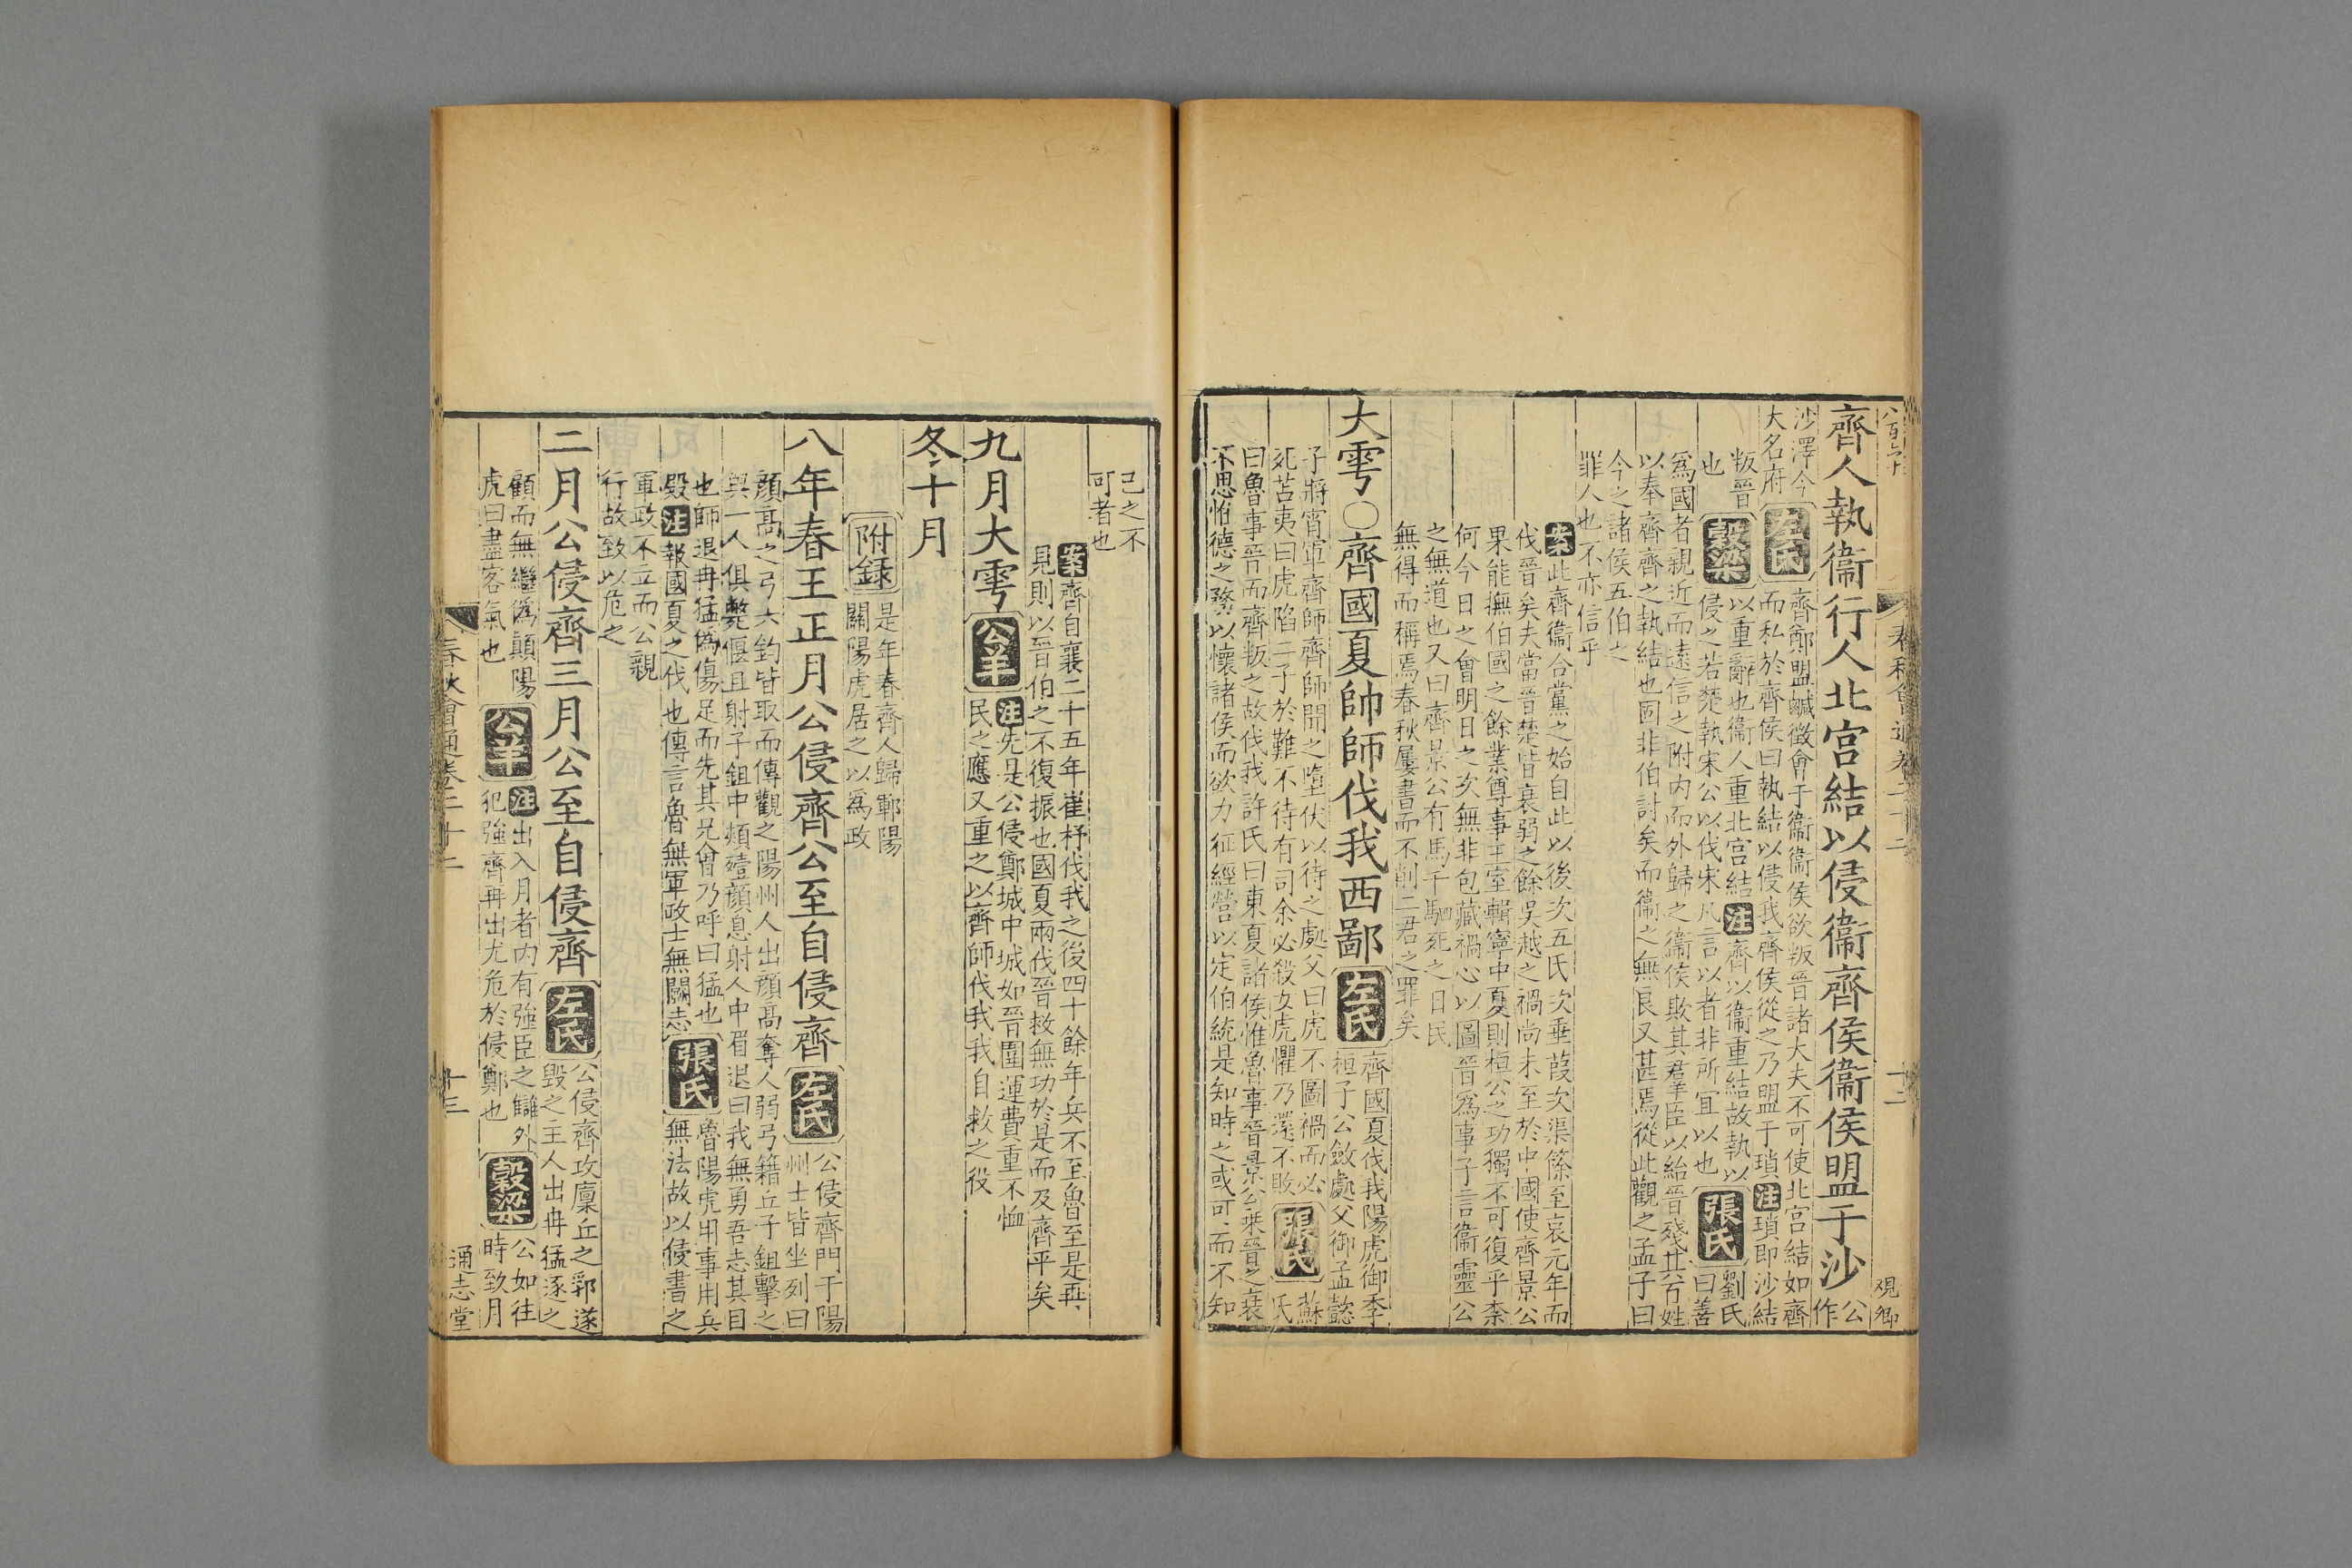 八百六十
春秋會通卷二十二
十二
覌卿
齊人執衞行人北宮結以侵衞齊侯衞侯盟于沙公作
沙澤今
大名府
左氏
齊鄭盟鹹徵會于衞衞侯欲叛晉諸大夫不可使北宮結如齊
而私於齊侯曰執結以侵我齊侯從之乃盟于瑣注瑣即沙結
叛晉
也
穀梁
以重辭也衞人重北宮結注齊以衞重結故執以
侵之若楚執宋公以伐宋凡言以者非所宜以也
張氏
劉氏
曰善
爲國者親近而遠信之附內而外歸之衞侯欺其君羣臣以紿晉殘其百姓
以奉齊齊之執結也固非伯討矣而衞之無良又甚焉從此觀之孟子曰
今之諸侯五伯之
罪人也不亦信乎
案此齊衞合黨之始自此以後次五氏次垂葭次渠篨至哀元年而
伐晉矣夫當晉楚皆衰弱之餘吳越之禍尚未至於中國使齊景公
果能撫伯國之餘業尊事王室輯寧中夏則桓公之功獨不可復乎柰
何今日之會明日之次無非包藏禍心以圖晉爲事子言衞靈公
之無道也又曰齊景公有馬千駟死之日民
無得而稱焉春秋屢書而不削二君之罪矣
大雩○齊國夏帥師伐我西鄙左氏
齊國夏伐我陽虎御季
桓子公斂處父御孟懿
子將宵軍齊師齊師聞之墮伏以待之處父曰虎不圖禍而必
死苫夷曰虎陷二子於難不待有司余必殺女虎懼乃還不敗
張氏
蘇
氏
曰魯事晉而齊叛之故伐我許氏曰東夏諸侯惟魯事晉景公乘晉之衰
不思脩德之務以懷諸侯而欲力征經營以定伯統是知時之或可而不知
己之不
可者也
案齊自襄二十五年崔杼伐我之後四十餘年兵不至魯至是再
見則以晉伯之不復振也國夏兩伐晉救無功於是而及齊平矣
九月大雩公羊
注先是公侵鄭城中城如晉圍運費重不恤
民之應又重之以齊師伐我我自救之役
冬十月
附録
是年春齊人歸鄆陽
關陽虎居之以爲政
八年春王正月公侵齊公至自侵齊左氏
公侵齊門于陽
州士皆坐列曰
顔高之弓六鈞皆取而傳觀之陽州人出顔高奪人弱弓籍丘子鉏擊之
與一人俱斃偃且射子鉏中頰殪顔息射人中眉退曰我無勇吾志其目
也師退冉猛僞傷足而先其兄會乃呼曰猛也
殿注報國夏之伐也傳言魯無軍政士無鬭志
張氏
魯陽虎用事用兵
無法故以侵書之
軍政不立而公親
行故致以危之
二月公侵齊三月公至自侵齊左氏
公侵齊攻廩丘之郛遂
毁之主人出冉猛逐之
顧而無繼僞顛陽
虎曰盡客氣也
公羊
注出入月者內有強臣之讎外
犯強齊再出尤危於侵鄭也
穀梁
公如往
時致月
春秋會通卷二十二
十三
通志堂